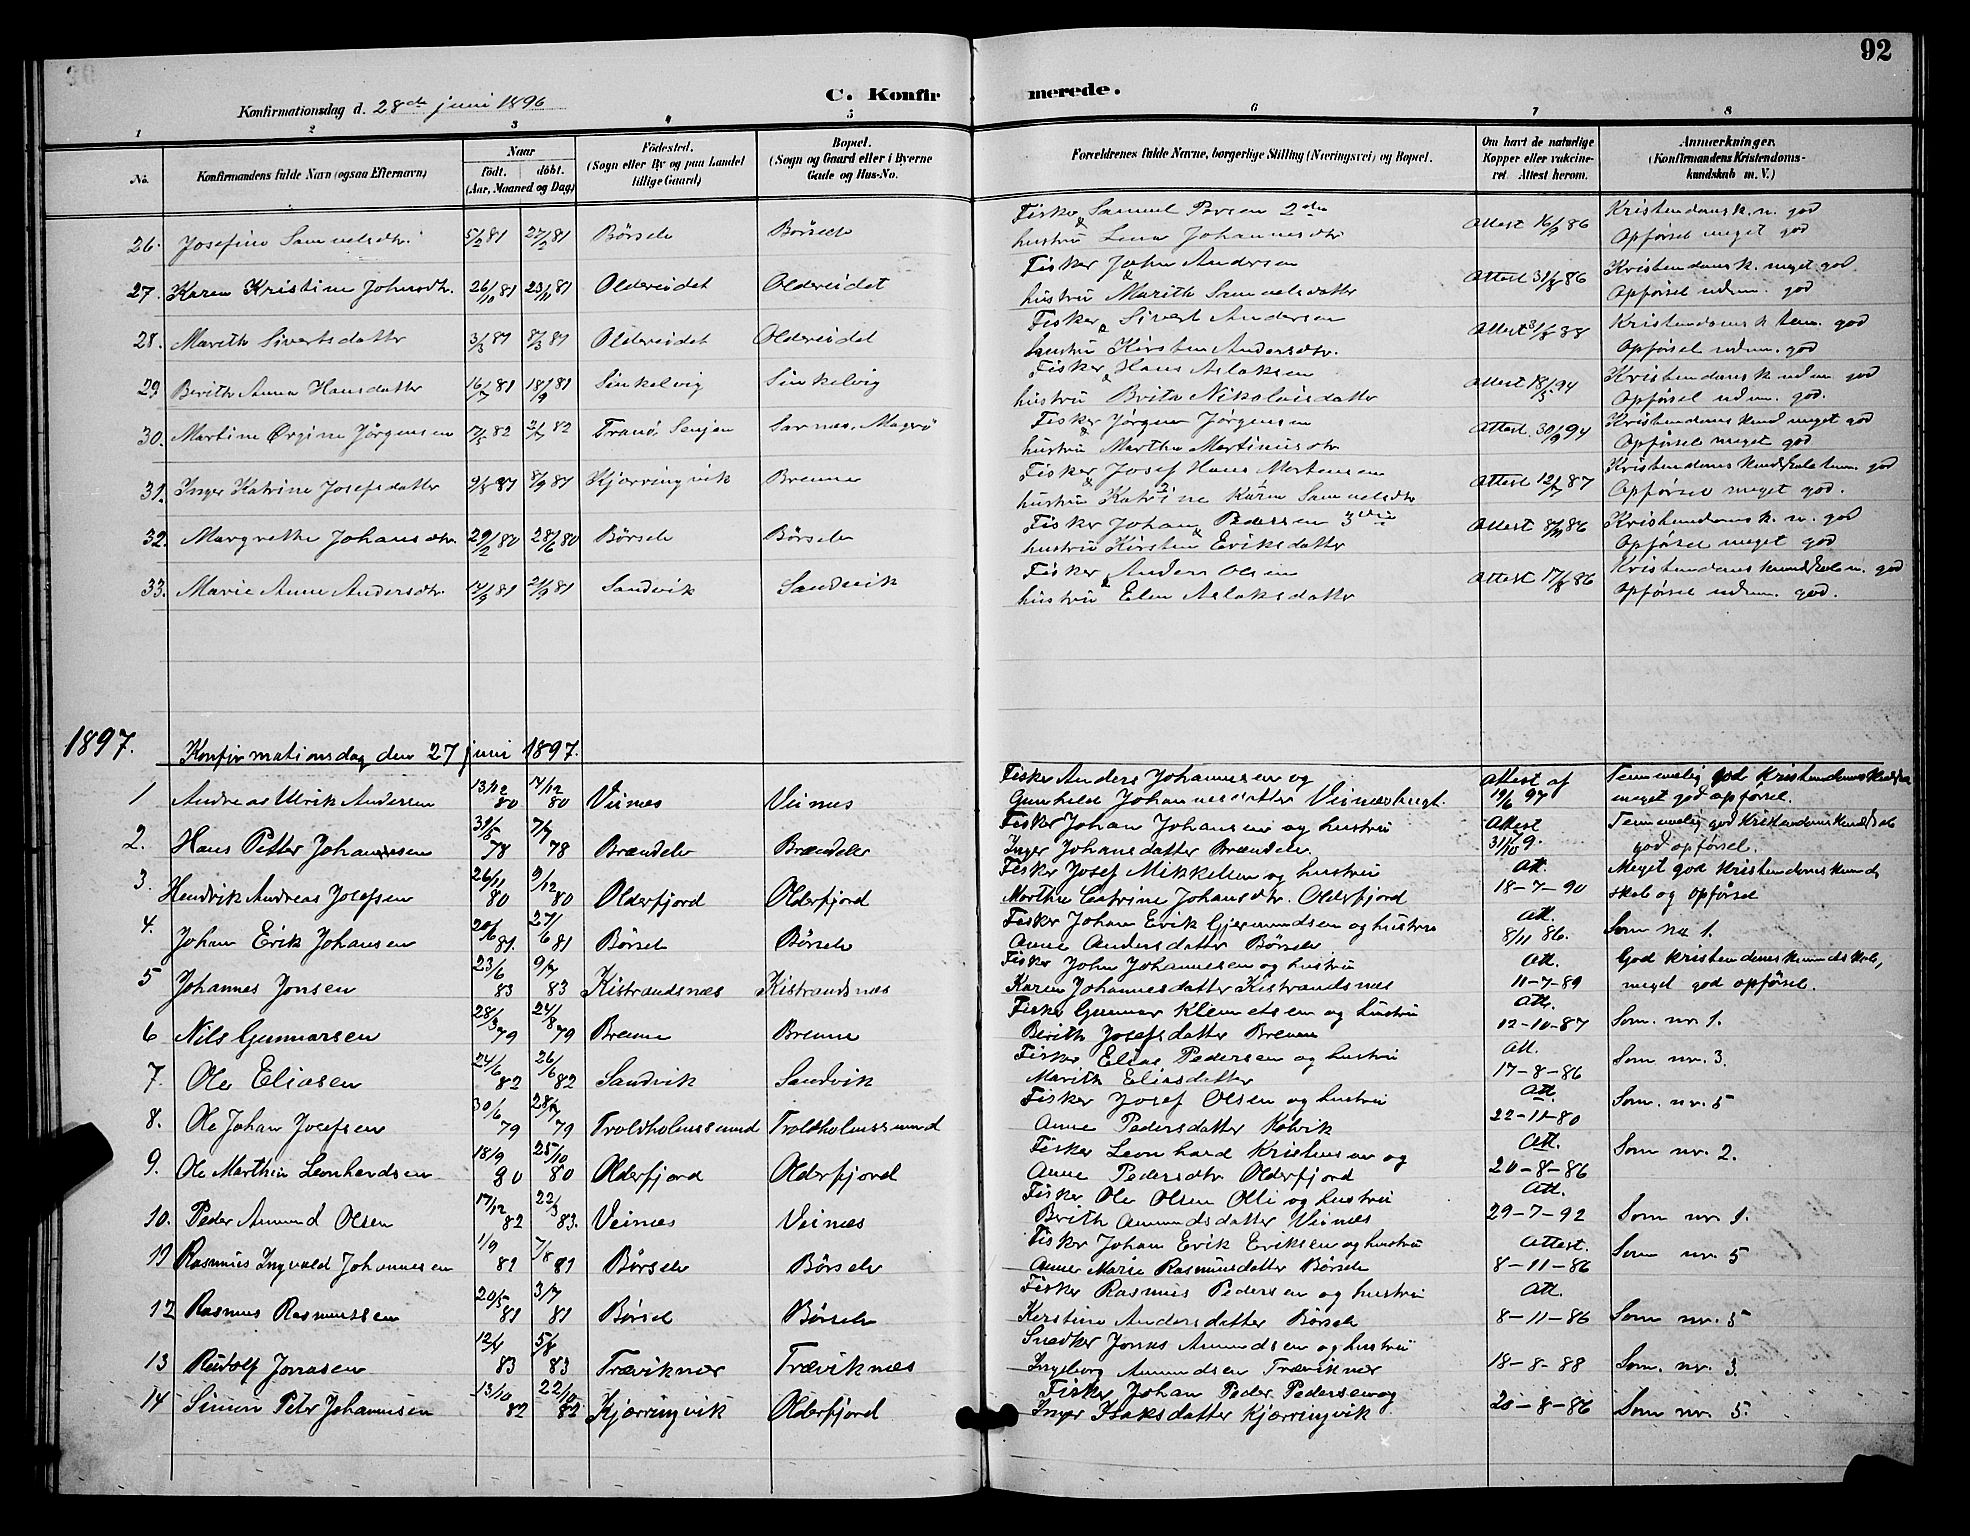 92
Konfirmationsdag d. 28de juni 1896
C. Konfirmerede.
1 2 3 4 5 6 7 8
No. Konfirmandens fulde Navn (ogsaa Efternavn) Naar født. døbt. (Aar, Maaned og Dag) Fødested. (Sogn eller By og paa Landet tillige Gaard) Bopæl. (Sogn og Gaard eller i Byerne Gade og Hus-No. Forældrenes fulde Navne, borgerlige Stilling (Næringsvei) og Bopæl. Om havt de naturlige Kopper eller vaccineret. Attest herom. Anmærkninger. (Konfirmandens Kristendomskundskab m. V.)
26. Josefine Samuelsdtr. 5/2 81 27/2 81 Børselv Børselv Fisker Samuel Persen 2den & hustru Lena Johannesdtr Attest 16/9 86 Kristendomsk. n. god Opførsel meget god
27. Karen Kristine Johnsdtr. 26/10 81 23/11 81 Oldereidet Oldereidet Fisker John Andersen & hustru Marith Samuelsdatter Attest 31/8 86 Kristendomsk. meget god. Opførsel udm. god
28. Marith Sivertsdatter 3/3 81 8/3 81 Oldereidet Oldereidet Fisker Sivert Andersen & hustru Kirsten Andersdtr. Attest 31/8 88 Kristendomsk. tem. god Opførsel udm. god
29 Berith Anna Hansdatter 16/7 81 18/9 81 Sinkelvig Sinkelvig Fisker Hans Aslaksen & hustru Brita Nikolaisdatter Attest 18/5 94 Kristendomsk. udm god Opførsel udm. god.
30. Martine Ørgine Jørgensen 17/5 82 2/7 82 Tranø, Senjen Sarnes, Magerø Fisker Jørgen Jørgensen & hustru Martha Martinusdtr Attest. 30/9 94 Kristendomskund meget god Opførsel meget god
31. Inger Katrine Josefsdatter 9/8 81 8/9 81 Kjærringvik Brenna Fisker Josef Hans Mortensen & hustru Katrine Karen Samuelsdtr Attest 12/7 87 Kristendomskundskab tem. god Opførsel meget god.
32. Margrethe Johansdtr. 29/2 80 28/6 80 Børselv Børselv Fisker Johan Pedersen 3die & hustru Kirsten Eriksdatter Attest 8/11 86 Kristendomsk. n. god Opførsel meget god
33. Marie Anne Andersdtr. 14/9 81 21/9 81 Sandvik Sandvik Fisker Anders Olsen & hustru Elen Aslaksdatter Attest 17/8 86 Kristendomskundskab n. god Opførsel udm. god.
1897. Konfirmationsdag den 27 juni 1897.
1 Andreas Ulrik Andersen 13/12 80 14/12 80 Veines Veines Fisker Anders Johannesen og Gunhild Johannesdatter Attest af 19/6 97 Temmelig god Kristendomskundskab meget god opførsel.
2. Hans Petter Johannesen 31/5 78 7/7 78 Brændelv Brændelv Fisker Johan Johansen og hustru Inger Johansdatter Brændelv Attest 31/10 79. Temmelig god Kristendomskundskab god opførsel.
3. Hendrik Andreas Josefsen 26/11 80 9/12 80 Olderfjord Olderfjord Fisker Josef Mikkelsen og hustru Marthe Catrine Johansdtr. Olderfjord Att. 18-7-90 Meget god Kristendomskundskab og opførsel
4. Johan Erik Johansen 20/6 81. 27/6 81 Børselv Børselv Fisker Johan Erik Gjermundsen og hustru Anne Andersdatter Børselv Att. 8/11 86. Som nr 1.
5 Johannes Jonsen 23/6 83 9/7 83 Kistrandsnæs Kistrandsnæs Fisker John Johannesen og hustru Karen Johannesdatter Kistrandsnæs Att. 11-7-89 God Kristendomskundskab, meget god opførsel.
6 Nils Gunnarsen 28/3 79 24/8 79 Brenna Brenna Fisker Gunnar Klemetsen og hustru Berith Josefsdatter Brenna Att. 12-10-87 Som. nr. 1.
7. Ole Eliasen 24/6 82 26/6 82 Sandvik Sandvik Fisker Elias Pedersen og hustru Marith Eliasdatter Att. 17-8-86 Som nr. 3.
8. Ole Johan Josefsen 30/6 79 28/7 79 Troldholmssund Troldholmssund Fisker Josef Olsen og hustru Anne Pedersdatter Kolvik Att. 22-11-80 Som. nr. 5
9. Ole Marthin Leonhardsen 18/9 80 25/10 80 Olderfjord Olderfjord Fisker Leonhard Kristensen og Anne Pedersdtr Olderfjord Att. 20-8-86 Som nr. 2.
10. Peder Amund Olsen 17/12 82 22/3 83. Veinæs Veinæs Fisker Ole Olsen Olli og hustru Brith Amundsdatter Veinæs Att. 29-7-92 Som nr. 1.
11 Rasmus Ingvald Johannesen 1/9 81 7/8 81 Børselv Børselv Fisker Johan Erik Eriksen og hustru Anne Marie Rasmusdatter Børselv Attest. 8-11-86 Som nr. 5
12 Rasmus Rasmussen 20/5 81 3/7 81 Børselv Børselv Fisker Rasmus Pedersen og hustru Kerstine Andersdatter Børselv Att. 8-11-86 Som nr. 5
13 Rudolf Jonasen 12/4 83 5/8 83 Træviknæs Træviknæs Snedker Jonas Amundsen og hustru Ingeborg Amundsen Træviknæs 18-8-88 Som. nr. 3.
14 Simon Peter Johannesen 13/10 82 22/10 82 Kjærringvik Olderfjord Fisker Johan Peder Pedersen og Inger Isaksdatter Kjærringvik 28-8-86 Som nr. 5.